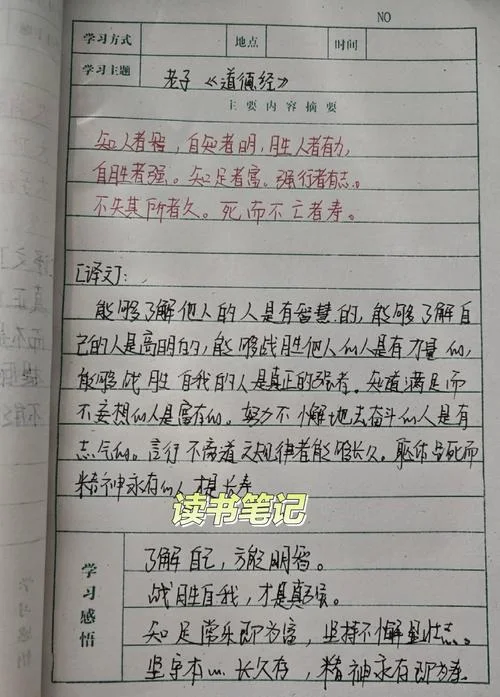 NO
学习方式 地点 时间
学习主题 老子《道德经》
主要内容摘要
知人者智，自知者明，胜人者有力，
自胜者强。知足者富。强行者有志。
不失其所者久。死而不亡者寿。
[译文]：
能够了解他人的人是有智慧的，能够了解自
己的人是高明的，能够战胜他人的人是有力量的，
能够战胜自我的人是真正的强者。知道满足而
不妄想的人是富有的。努力不懈地去奋斗的人是有
志气的。言行不离道之规律者能够长久。躯体虽死而
精神永存的人才是长寿
读书笔记
学习感悟
了解自己，方能明智。
战胜自我，才是真强。
知足常乐即为富，坚持不懈显壮志。
坚守本心长久存，精神永存即为寿。